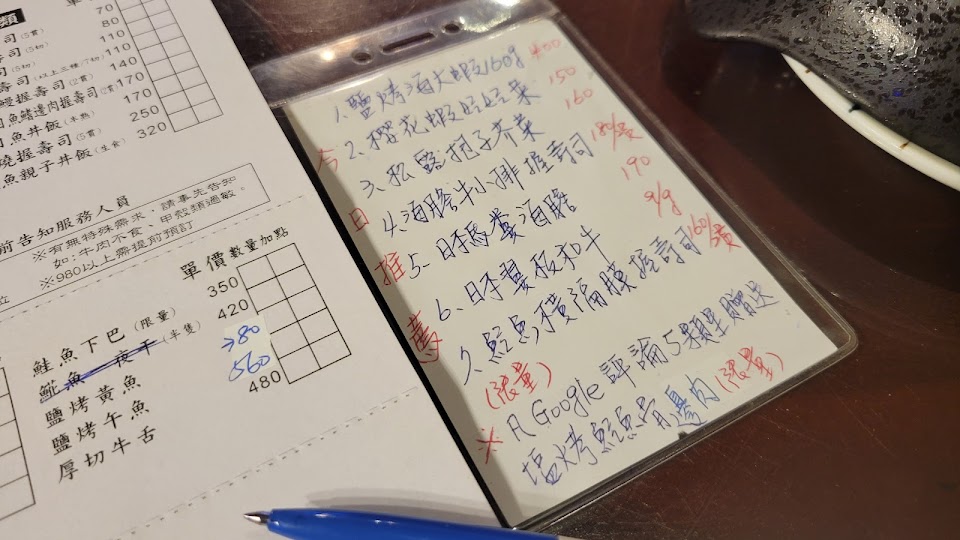 類
單
司(5貫) 70
司(5切) 80
司(以上三種7切) 110
壽司(2貫) 110
鰻握壽司 140
魚鰭邊肉握壽司(2貫) 170
魚丼飯(半熟) 170
燒握壽司(5貫) 250
魚親子丼飯(生食) 320
前告知服務人員
※有無特殊需求,請事先告知
如:牛肉不食、甲殼類過敏。
位 ※980以上需提前預訂
單價 數量 加點
鮭魚下巴(限量) 350
魚一夜干(半隻) 420
鹽烤黃魚 380
鹽烤午魚 560
厚切牛舌 480
今日推薦
1.鹽烤海大蝦160g 400
2.櫻花蝦 菜 150
3.松露 160
4.海膽牛小排握壽司 180/貫
5.日本馬糞海膽 190
6.日本翼板和牛 9/g
7.鮭魚橫隔膜握壽司 160/貫
(限量)
※ Google評論5顆星贈送
塩烤鮭魚肯邊肉(限量)